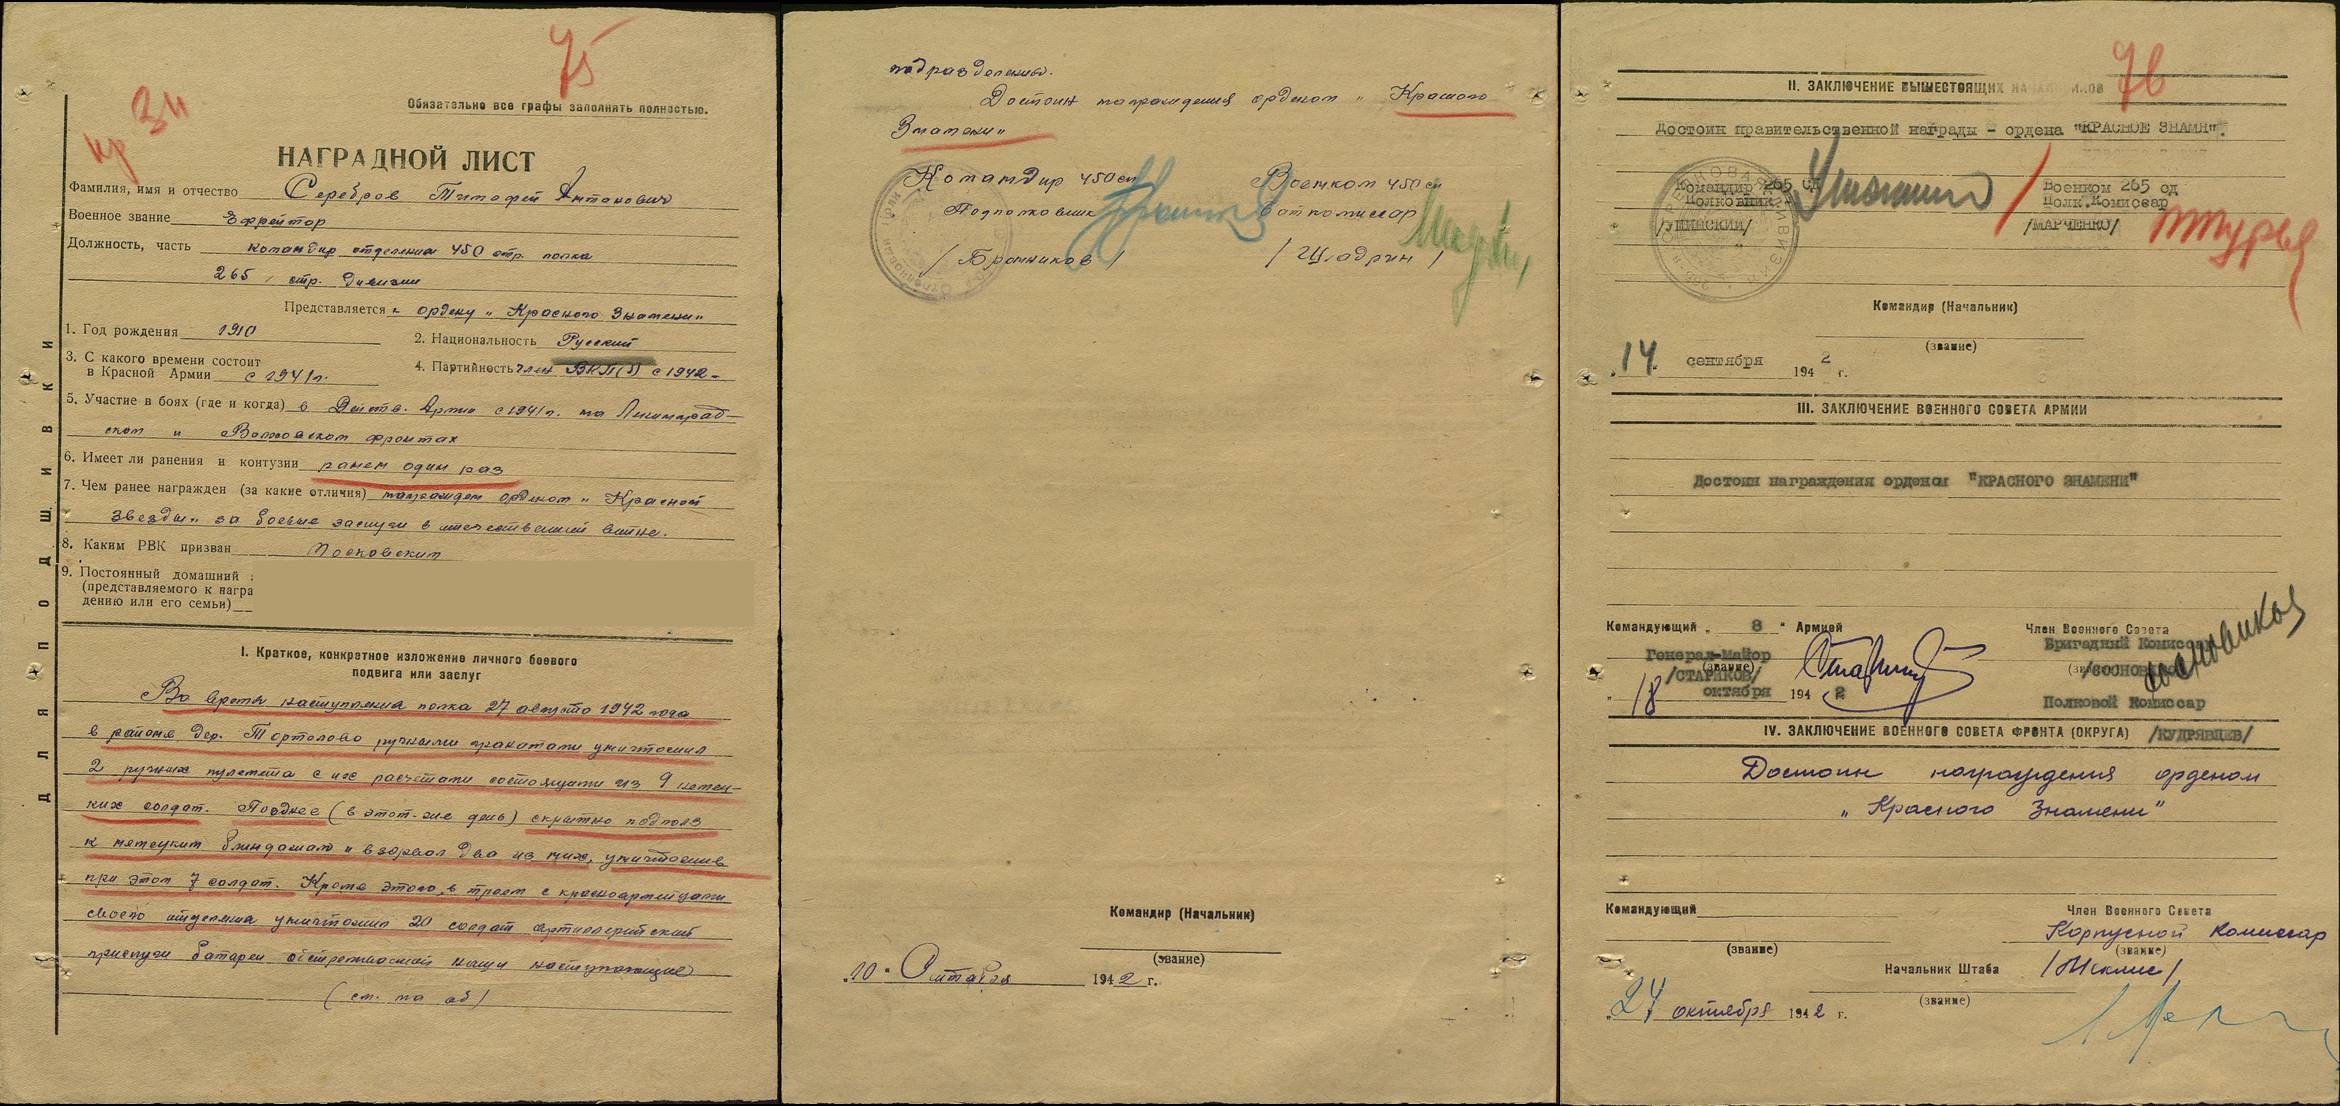 75
Кр Зн
Обязательно все графы заполнять полностью.
НАГРАДНОЙ ЛИСТ
Фамилия, имя и отчество Серебров Тимофей Антонович
Военное звание Ефрейтор
Должность, часть командир отделения 450 стр. полка
265 стр. дивизии
Представляется к ордену „Красного Знамени"
1. Год рождения 1910
2. Национальность Русский
3. С какого времени состоит
в Красной Армии с 1941 г.
4. Партийность член ВКП(б) с 1942
5. Участие в боях (где и когда) в Действ. Армии с 1941 г. на Ленинград-
ском и Волховском фронтах
6. Имеет ли ранения и контузии ранен один раз
7. Чем ранее награжден (за какие отличия) награжден орденом „Красной
Звезды" за боевые заслуги в отечественной войне.
8. Каким РВК призван Московским
9. Постоянный домашний
(представляемого к награ
дению или его семьи)
ДЛЯ ПОДШИВКИ
I. Краткое, конкретное изложение личного боевого
подвига или заслуг
Во время наступления полка 27 августа 1942 года
в районе дер. Тортолово ручными гранатами уничтожил
2 ручных пулемета с их расчетами состоящими из 9 немец-
ких солдат. Позднее (в этот-же день) скрытно подполз
к немецким блиндажам и взорвал два из них, уничтожив
при этом 7 солдат. Кроме этого, в троем с красноармейцами
своего отделения уничтожил 20 солдат артиллерийской
прислуги батареи обстреливавшей наши наступающие
(см. на об)
подразделения.
Достоин награждения орденом „Красного
Знамени"
Командир 450 сп
Подполковник
/Бронников/
Военком 450 сп
Баткомиссар
/Шадрин/
Командир (Начальник)
(звание)
„10" Сентября 1942 г.
76
II. ЗАКЛЮЧЕНИЕ ВЫШЕСТОЯЩИХ НАЧАЛЬНИКОВ
Достоин правительственной награды - ордена "КРАСНОЕ ЗНАМЯ".
Командир 265 СД
Полковник
/УШИНСКИЙ/
Военком 265 сд
Полк.Комиссар
/МАРЧЕНКО/
Командир (Начальник)
(звание)
„14" сентября 1942 г.
III. ЗАКЛЮЧЕНИЕ ВОЕННОГО СОВЕТА АРМИИ
Достоин награждения орденом "КРАСНОГО ЗНАМЕНИ"
Командующий „8" Армией
Генерал-Майор
(звание)
/СТАРИКОВ/
„18 октября 1942
Член Военного Совета
Бригадный Комиссар
Полковой Комиссар
/КУДРЯВЦЕВ/
IV. ЗАКЛЮЧЕНИЕ ВОЕННОГО СОВЕТА ФРОНТА (ОКРУГА)
Достоин награждения орденом
„Красного Знамени"
Командующий
(звание)
Член Военного Совета
Корпусной Комиссар
(звание)
Начальник Штаба
(звание)
/Мехлис/
„24 октября 1942 г.